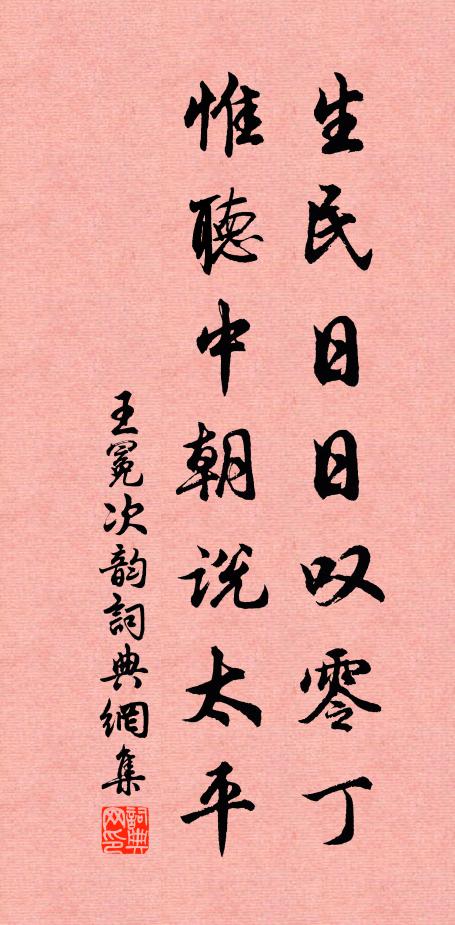 生民日日叹零丁
惟聽中朝说太平
王冕次韵詞典網集
詞典网印